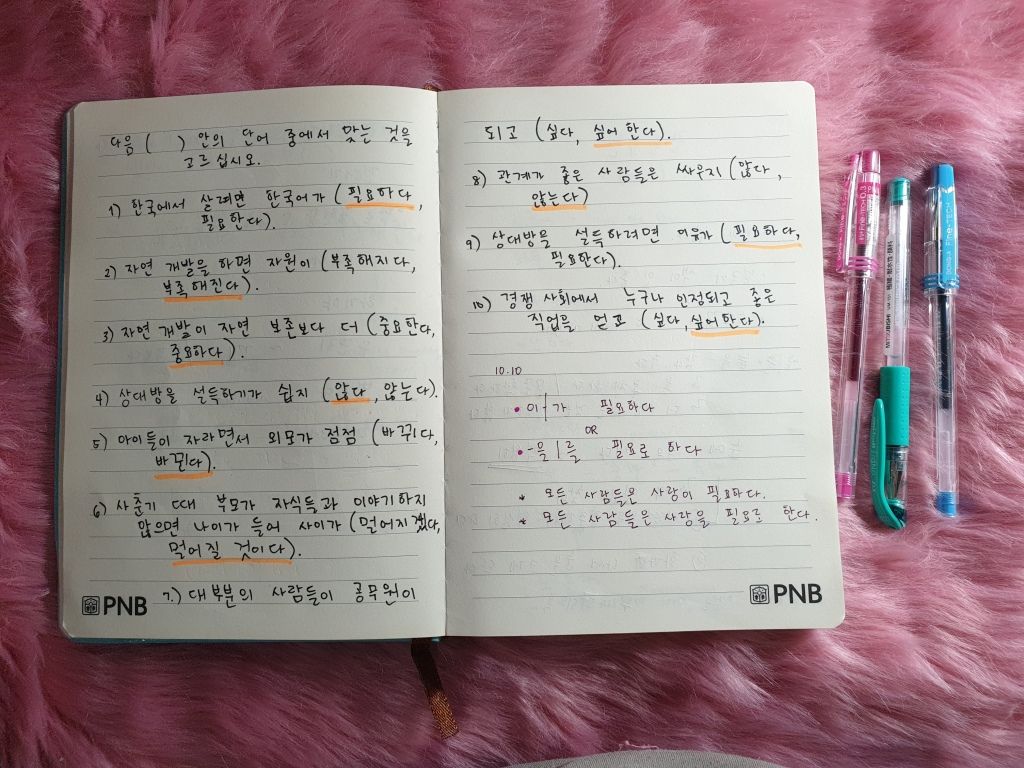 다음 ( ) 안의 단어 중에서 맞는 것을
고르십시오.
1) 한국에서 살려면 한국어가 (필요하다,
필요한다).
2) 자연 개발을 하면 자원이 (부족해지다,
부족해진다).
3) 자연 개발이 자연 보존보다 더 (중요한다,
중요하다).
4) 상대방을 설득하기가 쉽지 (않다, 않는다).
5) 아이들이 자라면서 외모가 점점 (바뀌다,
바뀐다).
6) 사춘기 때 부모가 자식들과 이야기하지
많으면 나이가 들어 사이가 (멀어지겠다,
멀어질 것이다).
7) 대부분의 사람들이 공무원이
PNB
되고 (싶다, 싶어 한다).
8) 관계가 좋은 사람들은 싸우지 (않다,
않는다)
9) 상대방을 설득하려면 이유가 (필요하다,
필요한다).
10) 경쟁 사회에서 누구나 인정되고 좋은
직업을 얻고 (싶다, 싶어한다).
10.10
• 이/가 필요하다
OR
• -을/를 필요로 하다
* 모든 사람들은 사랑이 필요하다.
* 모든 사람들은 사랑을 필요로 한다.
PNB